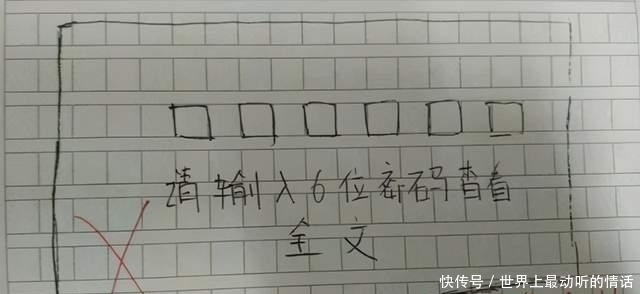 请输入6位密码查看
全文
快传号/世界上最动听的情话